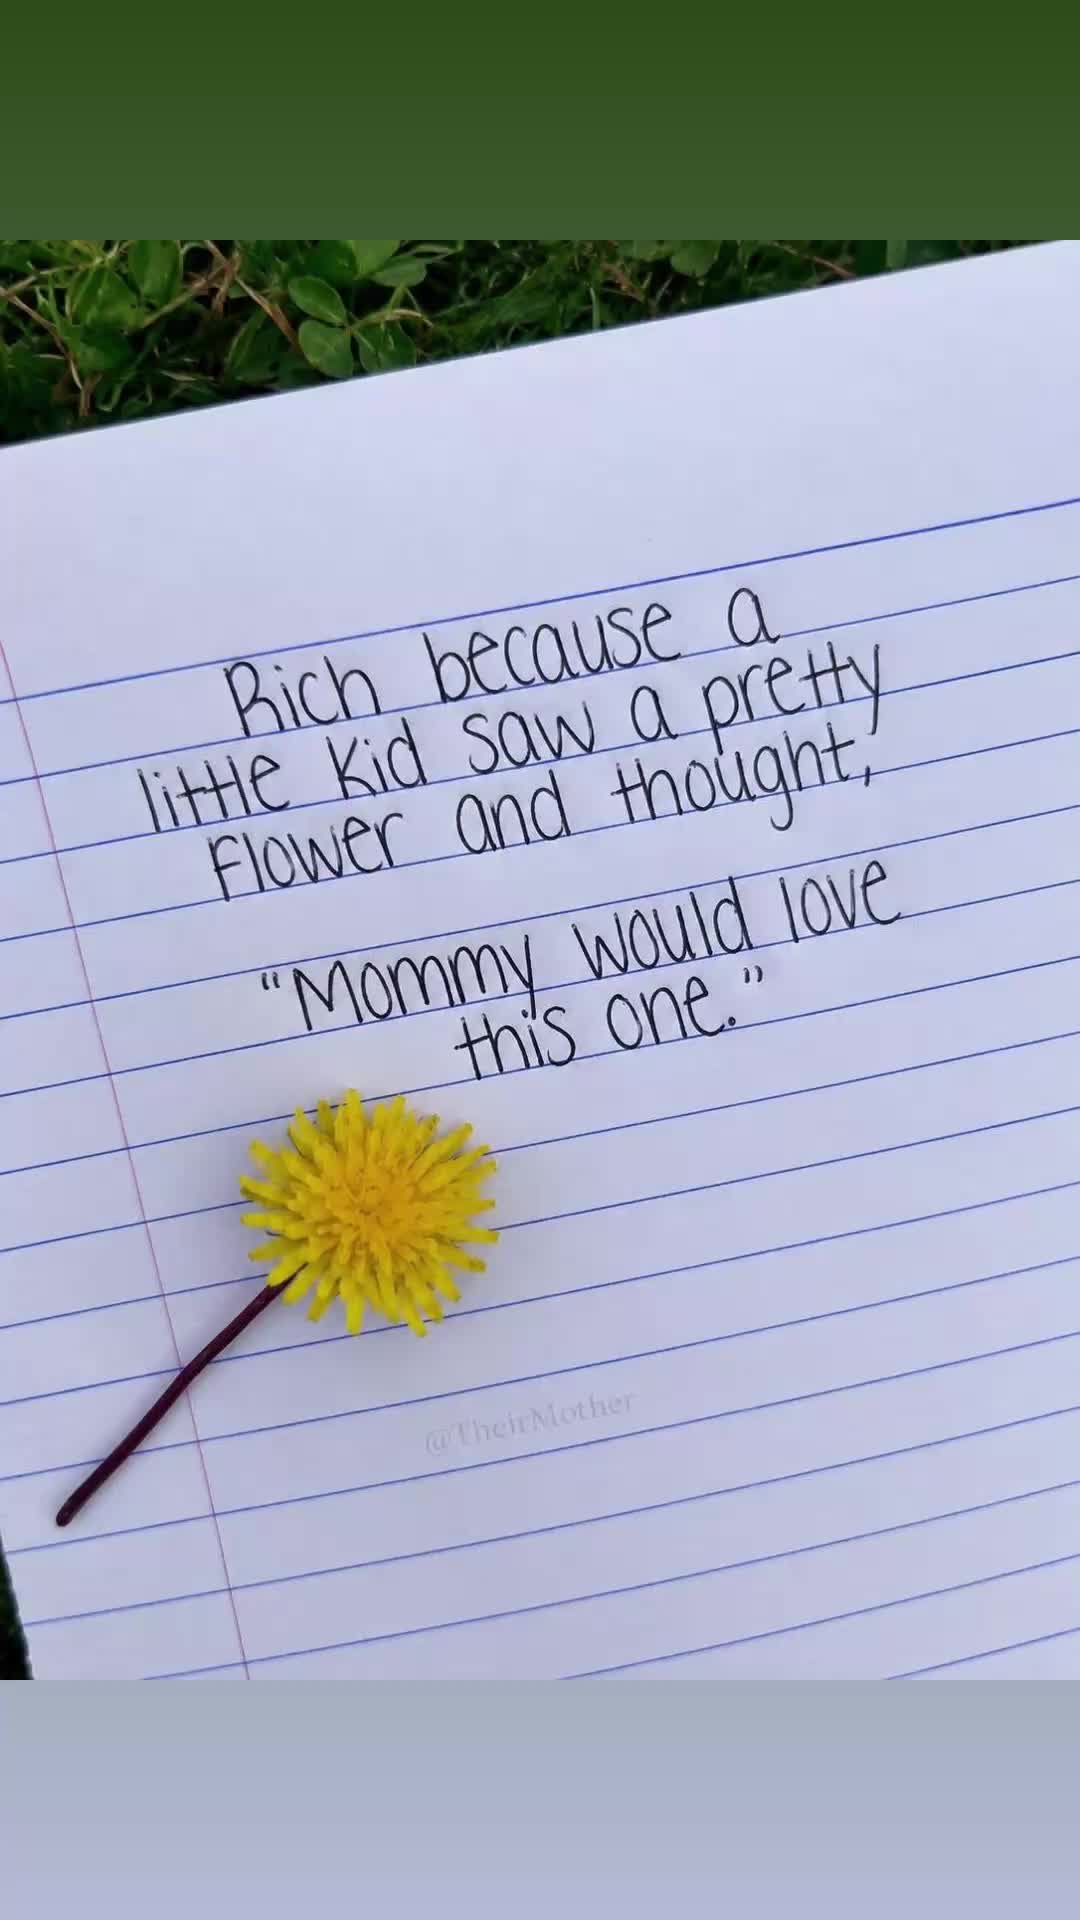 Rich because a
little kid saw a pretty
flower and thought,
“Mommy would love
this one.”
@TheirMother